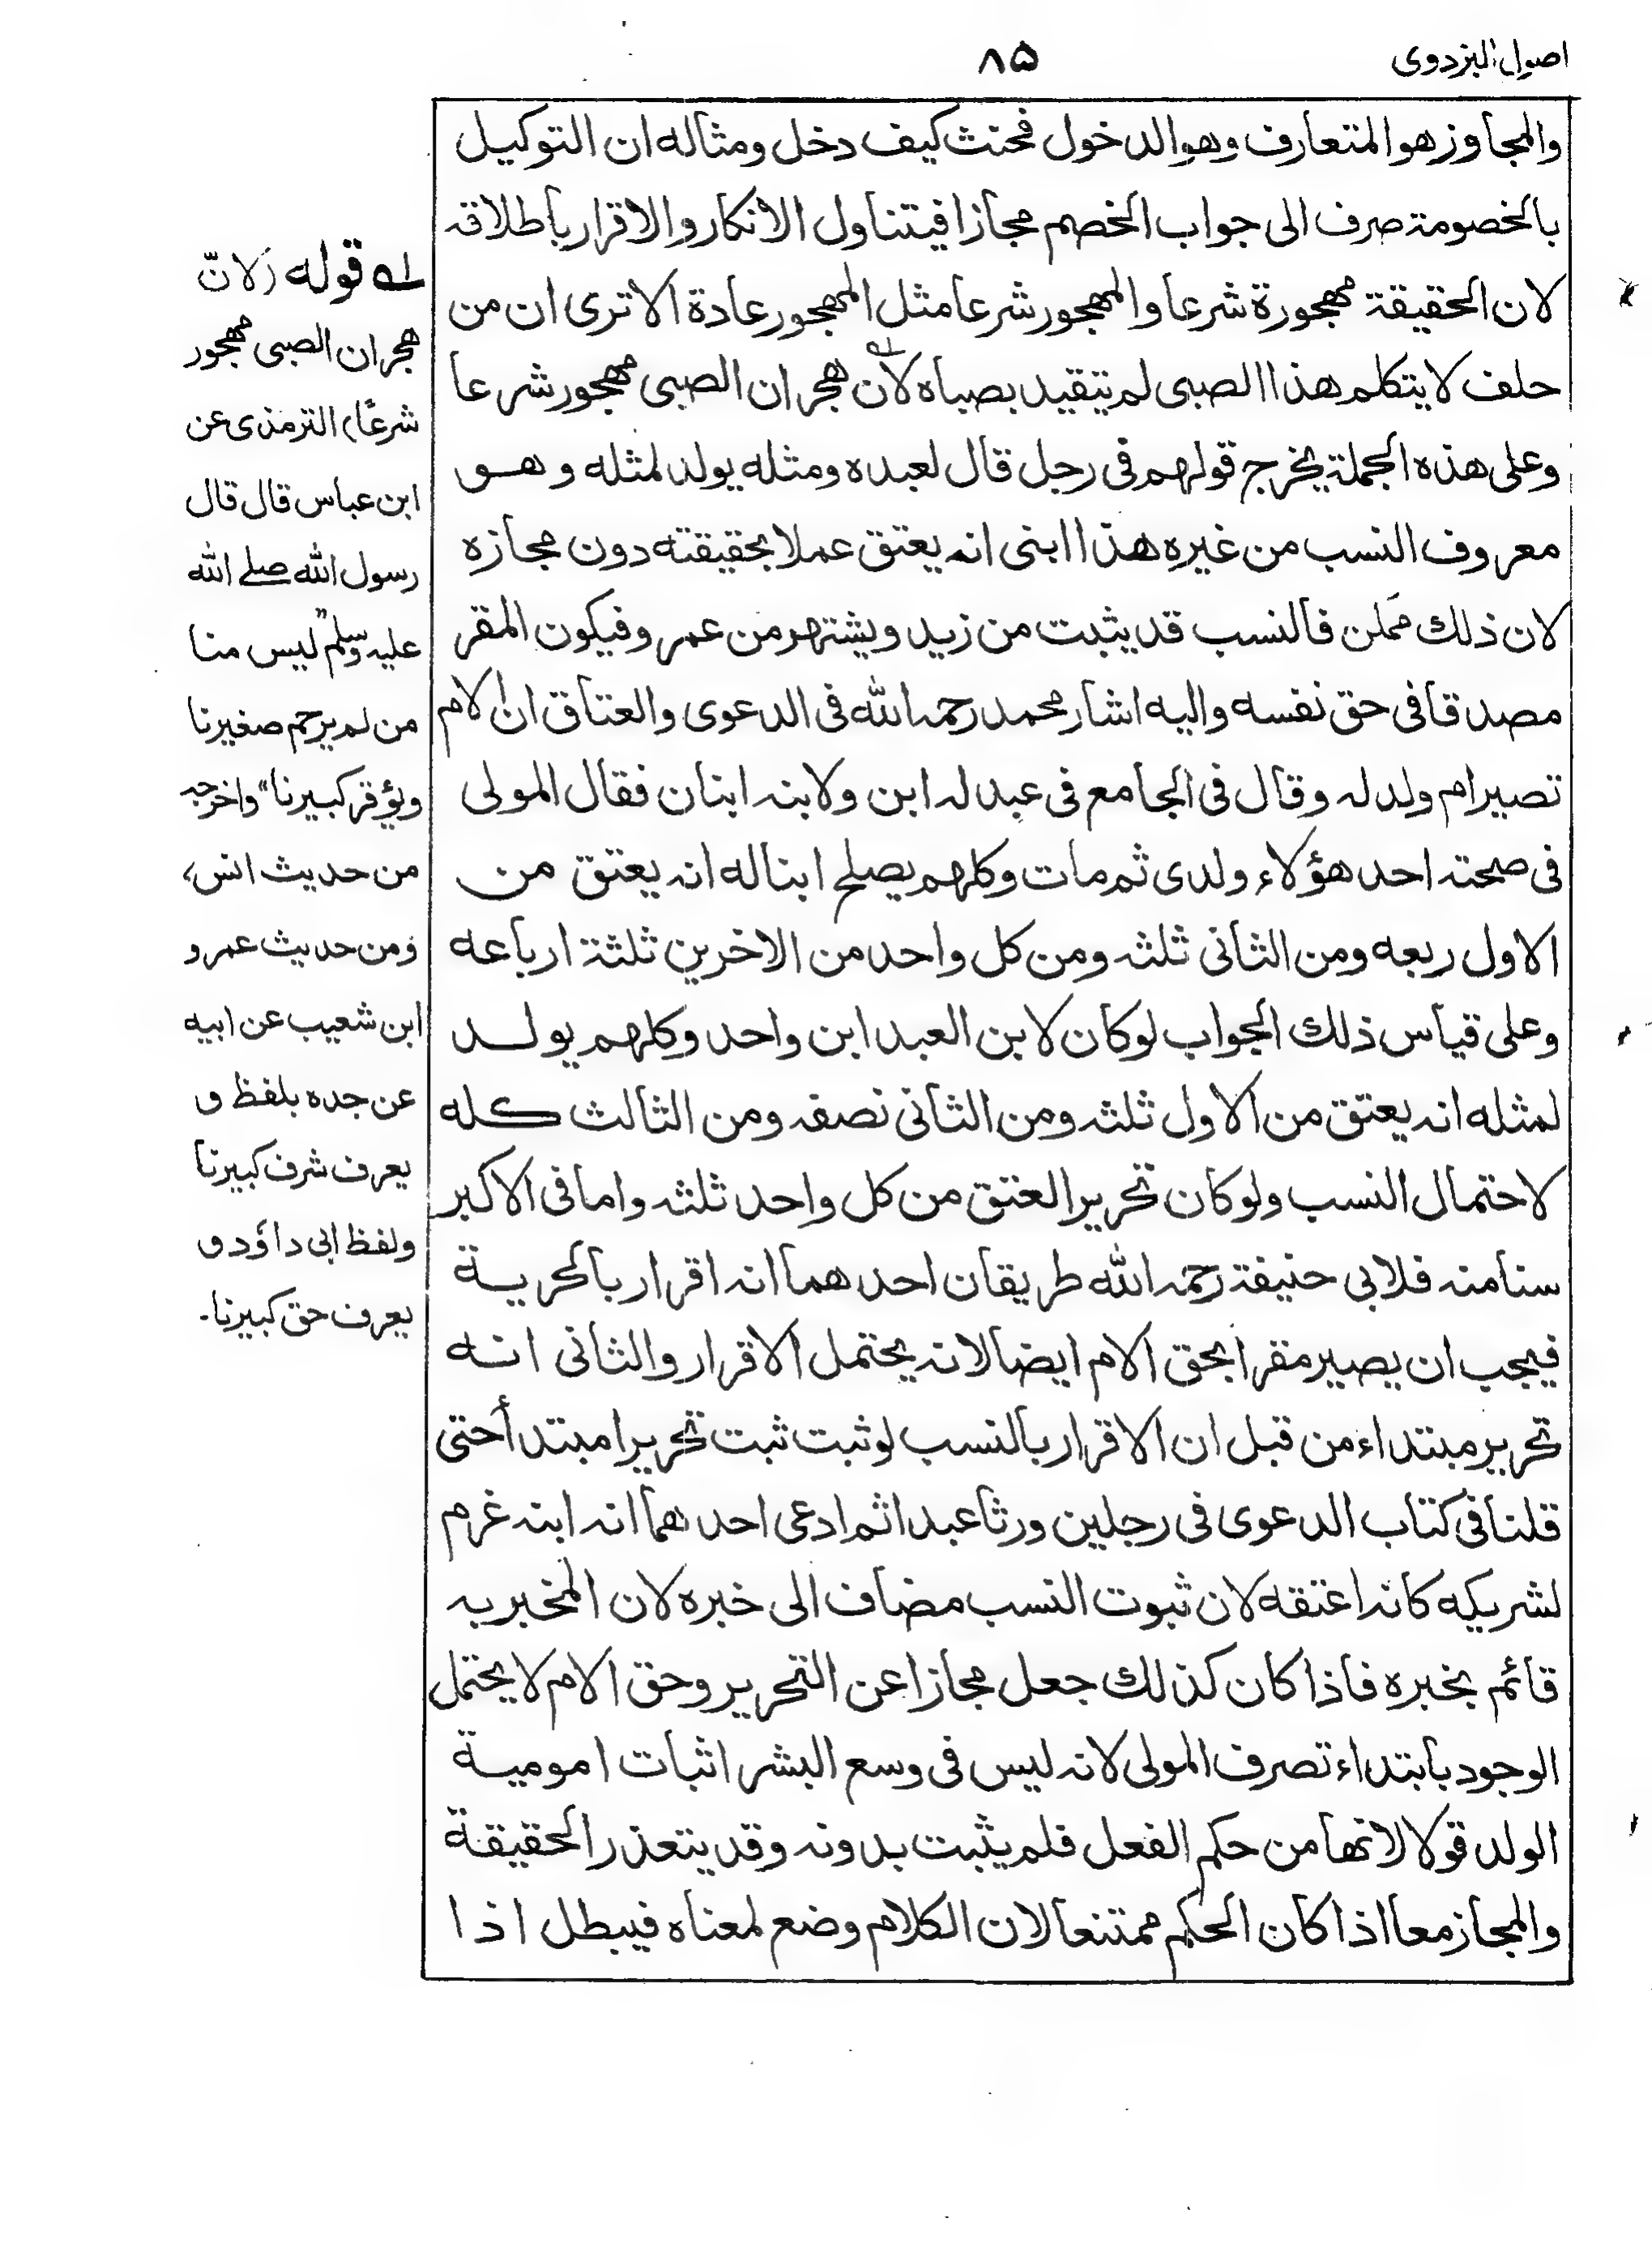 اصول البزدوی
۸۵
والمجاوز هو المتعارف وهو الدخول فحنث كيف دخل ومثاله ان التوكيل
بالخصومة صرف الى جواب الخصم مجازا فيتناول الانكار والاقرار باطلاقه
لان الحقيقة مهجورة شرعا والمهجور شرعا مثل المهجور عادة الا ترى ان من
حلف لا يتكلم هذا الصبى لم يتقيد بصباه لان هجران الصبى مهجور شرعا
وعلى هذه الجملة يخرج قولهم فى رجل قال لعبده ومثله يولد لمثله وهو
معروف النسب من غيره هذا ابنى انه يعتق عملا بحقيقته دون مجازه
لان ذلك ممكن فالنسب قد يثبت من زيد ويشتهر من عمرو فيكون المقر
مصدقا فى حق نفسه واليه اشار محمد رحمه الله فى الدعوى والعتاق ان الام
تصير ام ولد له وقال فى الجامع فى عبد له ابن ولابنه ابنان فقال المولى
فى صحته احد هؤلاء ولدى ثم مات وكلهم يصلح ابنا له انه يعتق من
الاول ربعه ومن الثانى ثلثه ومن كل واحد من الاخرين ثلثة ارباعه
وعلى قياس ذلك الجواب لو كان لابن العبد ابن واحد وكلهم يولد
لمثله انه يعتق من الاول ثلثه ومن الثانى نصفه ومن الثالث كله
لاحتمال النسب ولو كان تحرير العتق من كل واحد ثلثه واما فى الاكبر
سنا منه فلابى حنيفة رحمه الله طريقان احدهما انه اقرار بالحرية
فيجب ان يصير مقرا بحق الام ايضا لانه يحتمل الاقرار والثانى انه
تحرير مبتداء من قبل ان الاقرار بالنسب لو ثبت ثبت تحريرا مبتدأ حتى
قلنا فى كتاب الدعوى فى رجلين ورثا عبدا ثم ادعى احدهما انه ابنه غرم
لشريكه كانه اعتقه لان ثبوت النسب مضاف الى خبره لان المخبر به
قائم بخبره فاذا كان كذلك جعل مجازا عن التحرير وحق الام لا يحتمل
الوجود بابتداء تصرف المولى لانه ليس فى وسع البشر اثبات امومية
الولد قولا لانها من حكم الفعل فلم يثبت بدونه وقد يتعذر الحقيقة
والمجاز معا اذا كان الحكم ممتنعا لان الكلام وضع لمعناه فيبطل اذا
لے قوله (لانّ
هجران الصبى مهجور
شرعًا) الترمذى عن
ابن عباس قال قال
رسول الله صلے الله
عليه وسلم "ليس منا
من لم يرحم صغيرنا
ويؤقر كبيرنا" واخرجه
من حديث انس،
ومن حديث عمرو
ابن شعيب عن ابيه
عن جده بلفظ و
يعرف شرف كبيرنا
ولفظ ابى داؤد و
يعرف حق كبيرنا۔